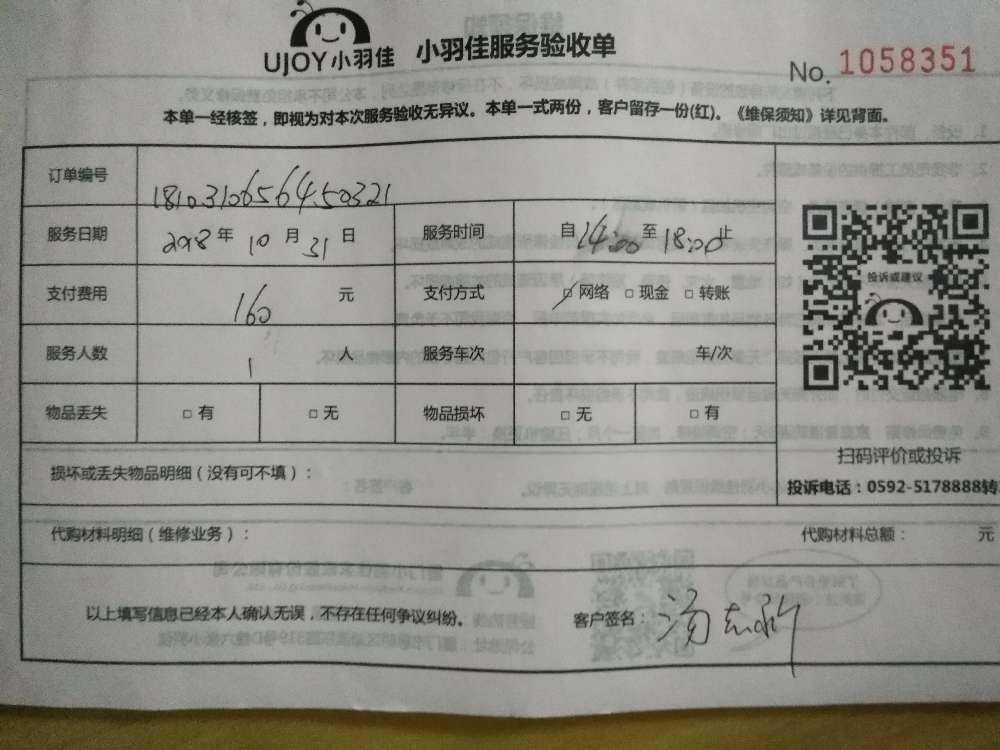 UJOY小羽佳 小羽佳服务验收单
No. 1058351
本单一经核签，即视为对本次服务验收无异议。本单一式两份，客户留存一份(红)。《维保须知》详见背面。
订单编号 18103106564450321
服务日期 2018年 10月 31日 服务时间 自14:00至18:00止
支付费用 160 元 支付方式 □网络 □现金 □转账
投诉或建议
服务人数 1 人 服务车次 车/次
物品丢失 □有 □无 物品损坏 □无 □有
扫码评价或投诉
损坏或丢失物品明细（没有可不填）：
投诉电话：0592-5178888转
代购材料明细（维修业务）： 代购材料总额： 元
以上填写信息已经本人确认无误，不存在任何争议纠纷。 客户签名：